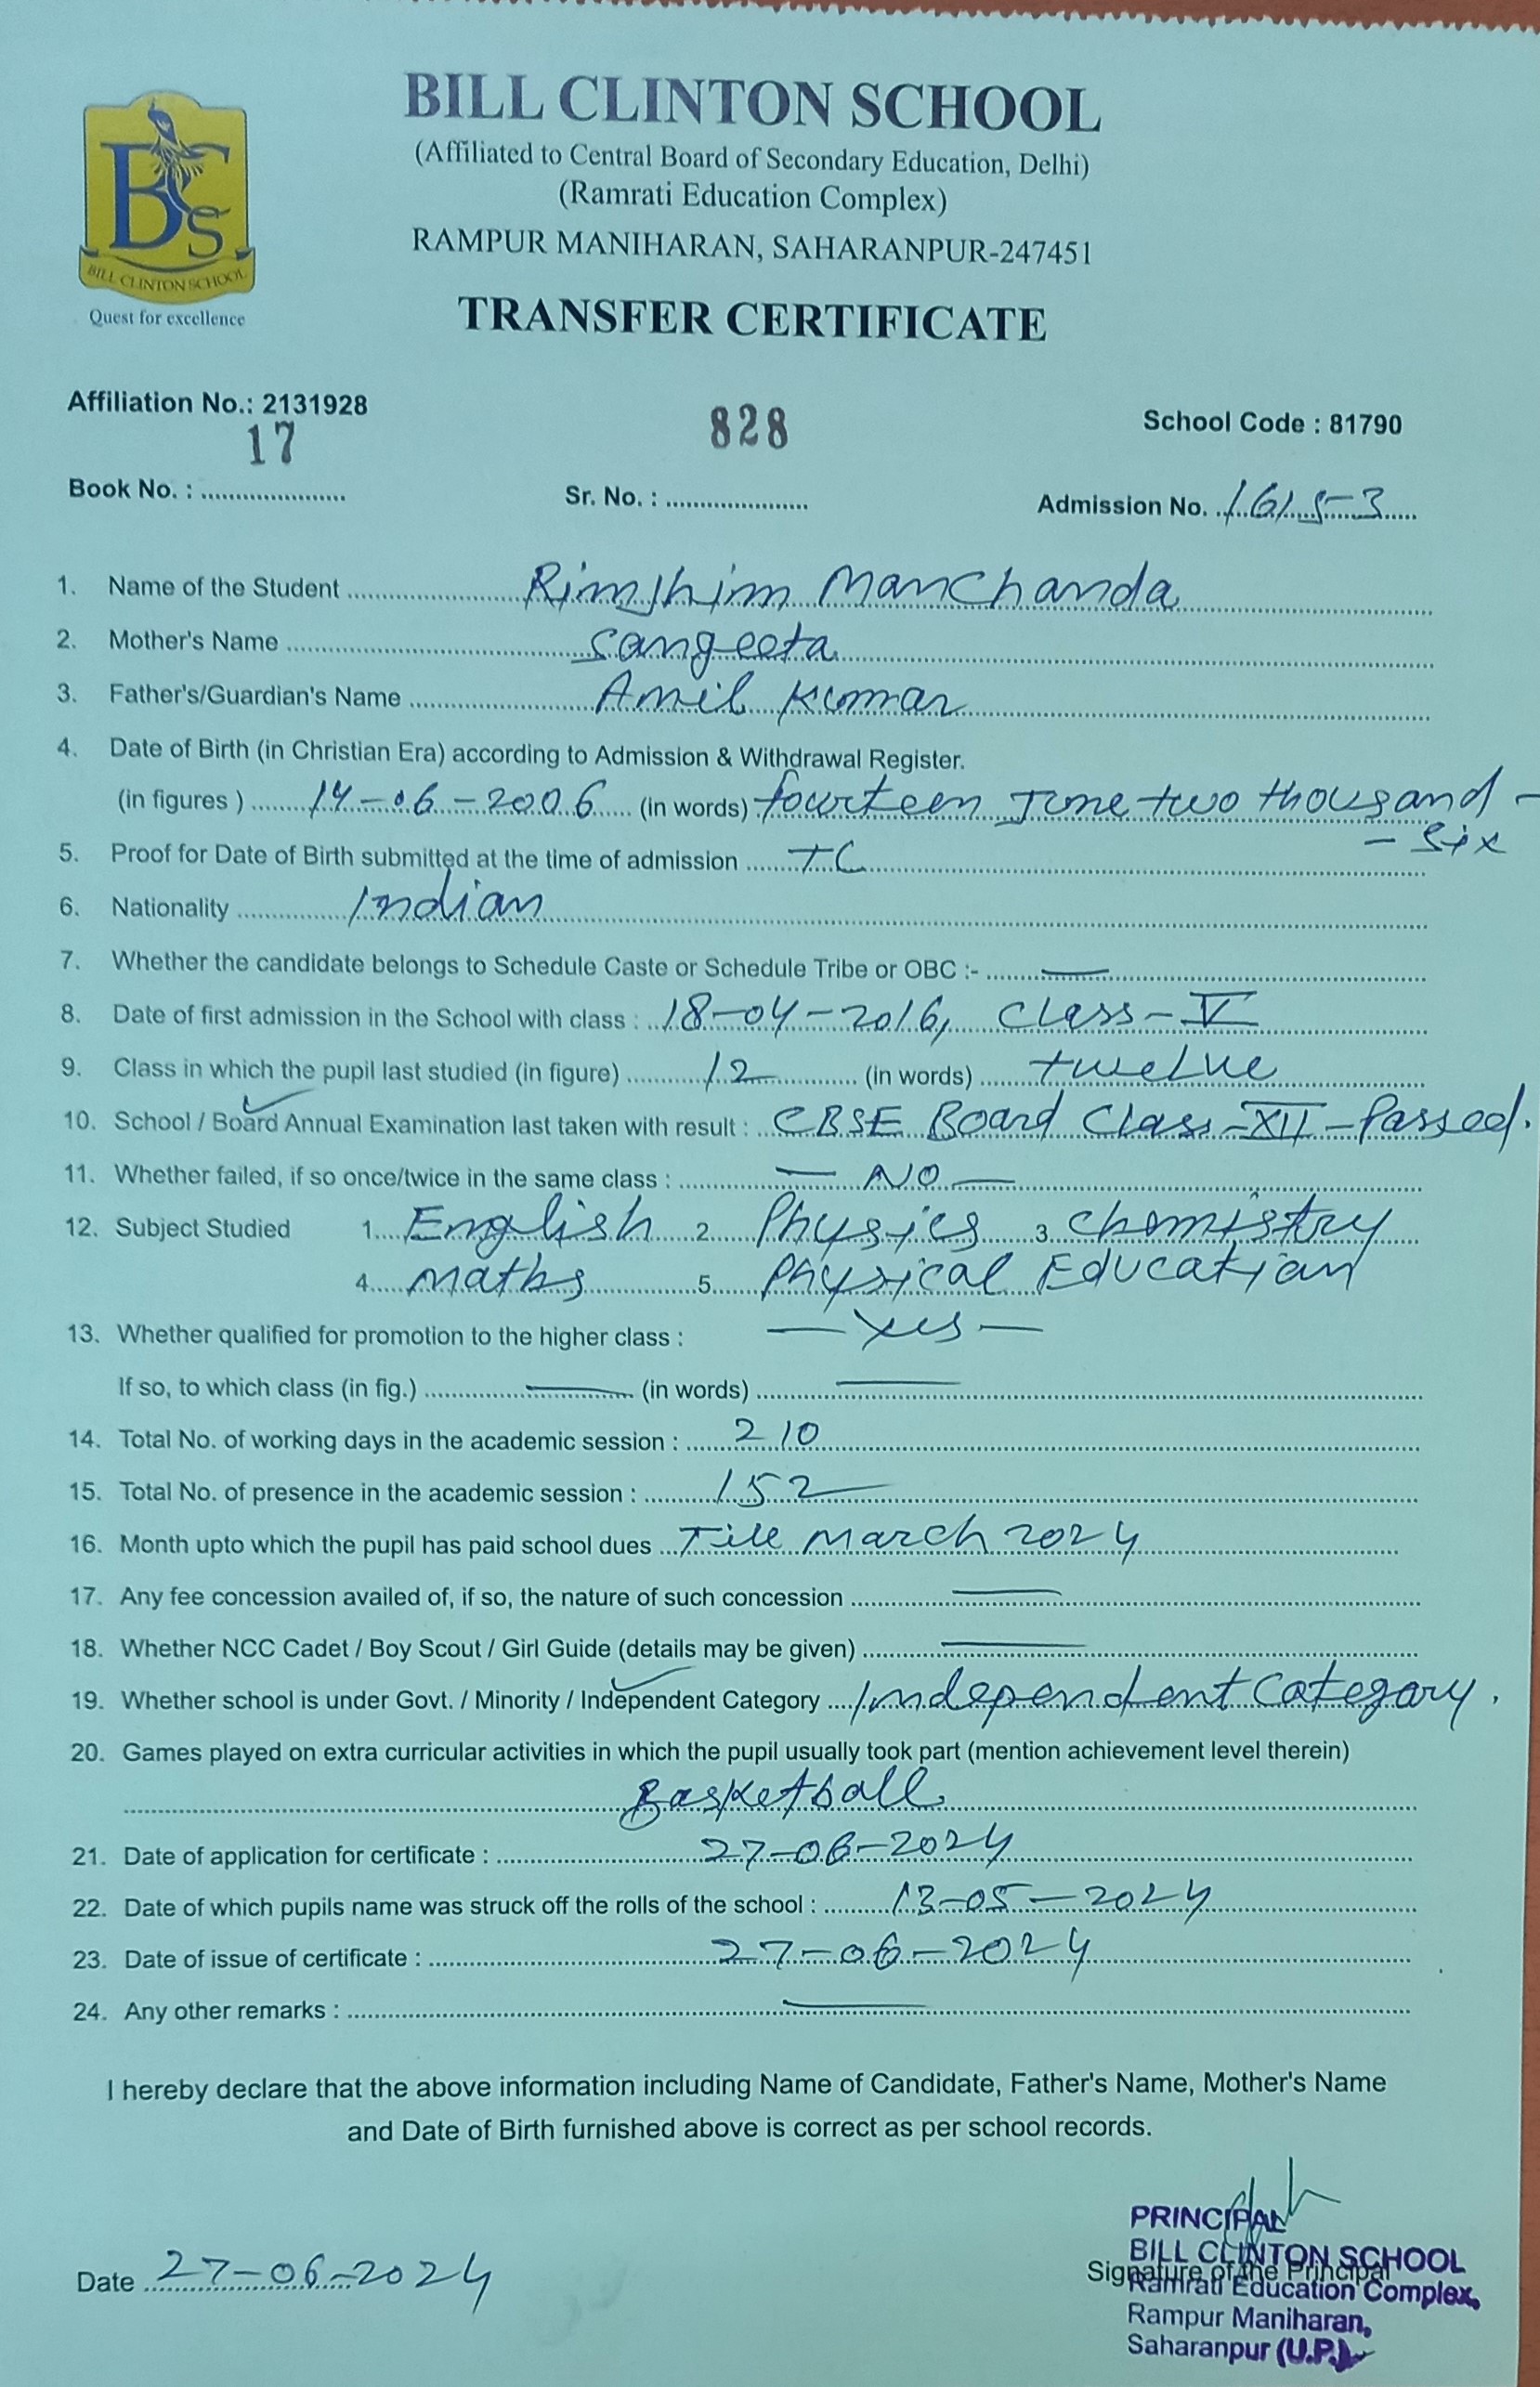 BILL CLINTON SCHOOL
(Affiliated to Central Board of Secondary Education, Delhi)
(Ramrati Education Complex)
RAMPUR MANIHARAN, SAHARANPUR-247451
TRANSFER CERTIFICATE
BCS
BILL CLINTON SCHOOL
Quest for excellence
Affiliation No.: 2131928
School Code : 81790
Book No. : 17 Sr. No. : 828 Admission No. 1615-3
1. Name of the Student Rimjhim Manchanda
2. Mother's Name Sangeeta
3. Father's/Guardian's Name Anil Kumar
4. Date of Birth (in Christian Era) according to Admission & Withdrawal Register.
(in figures ) 14-06-2006 (in words) fourteen June two thousand -
- Six
5. Proof for Date of Birth submitted at the time of admission TC
6. Nationality Indian
7. Whether the candidate belongs to Schedule Caste or Schedule Tribe or OBC :- —
8. Date of first admission in the School with class : 18-04-2016, Class-V
9. Class in which the pupil last studied (in figure) 12 (in words) twelve
10. School / Board Annual Examination last taken with result : CBSE Board Class-XII-Passed.
11. Whether failed, if so once/twice in the same class : — NO —
12. Subject Studied 1. English 2. Physics 3. Chemistry
4. Maths 5. Physical Education
13. Whether qualified for promotion to the higher class : — Yes —
If so, to which class (in fig.) — (in words) —
14. Total No. of working days in the academic session : 210
15. Total No. of presence in the academic session : 152
16. Month upto which the pupil has paid school dues Till March 2024
17. Any fee concession availed of, if so, the nature of such concession —
18. Whether NCC Cadet / Boy Scout / Girl Guide (details may be given) —
19. Whether school is under Govt. / Minority / Independent Category Independent Category.
20. Games played on extra curricular activities in which the pupil usually took part (mention achievement level therein)
Basketball
21. Date of application for certificate : 27-06-2024
22. Date of which pupils name was struck off the rolls of the school : 13-05-2024
23. Date of issue of certificate : 27-06-2024
24. Any other remarks : —
I hereby declare that the above information including Name of Candidate, Father's Name, Mother's Name
and Date of Birth furnished above is correct as per school records.
PRINCIPAL
BILL CLINTON SCHOOL
Date 27-06-2024 Signature of the Principal
Ramrati Education Complex,
Rampur Maniharan,
Saharanpur (U.P.)